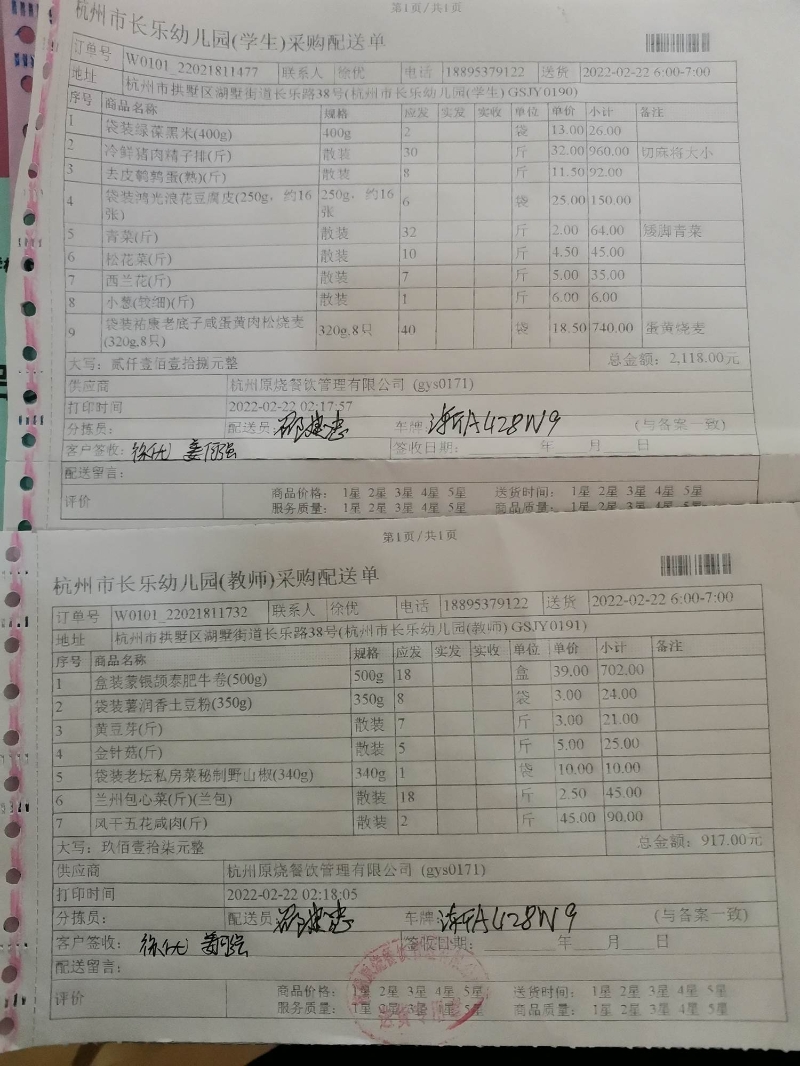 第1页/共1页
杭州市长乐幼儿园(学生)采购配送单
订单号 W0101_22021811477 联系人 徐优 电话 18895379122 送货 2022-02-22 6:00-7:00
地址 杭州市拱墅区湖墅街道长乐路38号(杭州市长乐幼儿园(学生) GSJY0190)
序号 商品名称 规格 应发 实发 实收 单位 单价 小计 备注
1 袋装绿葆黑米(400g) 400g 2 袋 13.00 26.00
2 冷鲜猪肉精子排(斤) 散装 30 斤 32.00 960.00 切麻将大小
3 去皮鹌鹑蛋(熟)(斤) 散装 8 斤 11.50 92.00
4 袋装鸿光浪花豆腐皮(250g，约16张) 250g，约16张 6 袋 25.00 150.00
5 青菜(斤) 散装 32 斤 2.00 64.00 矮脚青菜
6 松花菜(斤) 散装 10 斤 4.50 45.00
7 西兰花(斤) 散装 7 斤 5.00 35.00
8 小葱(铰细)(斤) 散装 1 斤 6.00 6.00
9 袋装祐康老底子咸蛋黄肉松烧麦(320g,8只) 320g,8只 40 袋 18.50 740.00 蛋黄烧麦
大写：贰仟壹佰壹拾捌元整 总金额：2,118.00元
供应商 杭州原烧餐饮管理有限公司 (gys0171)
打印时间 2022-02-22 02:17:57
分拣员： 配送员 邵建忠 车牌： 浙A428W9 (与备案一致)
客户签收： 徐优 签收日期： 年 月 日
配送留言：
评价 商品价格： 1星 2星 3星 4星 5星 送货时间： 1星 2星 3星 4星 5星
服务质量： 1星 2星 3星 4星 5星 商品质量： 1星 2星 3星 4星 5星
第1页/共1页
杭州市长乐幼儿园(教师)采购配送单
订单号 W0101_22021811732 联系人 徐优 电话 18895379122 送货 2022-02-22 6:00-7:00
地址 杭州市拱墅区湖墅街道长乐路38号(杭州市长乐幼儿园(教师) GSJY0191)
序号 商品名称 规格 应发 实发 实收 单位 单价 小计 备注
1 盒装蒙银颉泰肥牛卷(500g) 500g 18 盒 39.00 702.00
2 袋装薯润香土豆粉(350g) 350g 8 袋 3.00 24.00
3 黄豆芽(斤) 散装 7 斤 3.00 21.00
4 金针菇(斤) 散装 5 斤 5.00 25.00
5 袋装老坛私房菜秘制野山椒(340g) 340g 1 袋 10.00 10.00
6 兰州包心菜(斤)(兰包) 散装 18 斤 2.50 45.00
7 风干五花咸肉(斤) 散装 2 斤 45.00 90.00
大写：玖佰壹拾柒元整 总金额：917.00元
供应商 杭州原烧餐饮管理有限公司 (gys0171)
打印时间 2022-02-22 02:18:05
分拣员： 配送员 邵建忠 车牌： 浙A428W9 (与备案一致)
客户签收： 徐优 签收日期： 年 月 日
配送留言：
评价 商品价格： 1星 2星 3星 4星 5星 送货时间： 1星 2星 3星 4星 5星
服务质量： 1星 2星 3星 4星 5星 商品质量： 1星 2星 3星 4星 5星